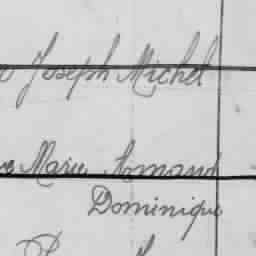 Joseph Michel
Marie Armand
Dominique